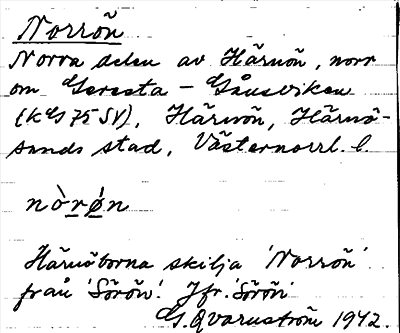 Norrön
Norra delen av Härnön, norr
om Geresta - Gånsviken
(KG 75 SV), Härnön, Härnö-
sands stad, Västernorrl. l.
nòrøn
Härnöborna skilja 'Norrön'
från 'Sörön'. Jfr. 'Sörön'
G. Qvarnström 1942.